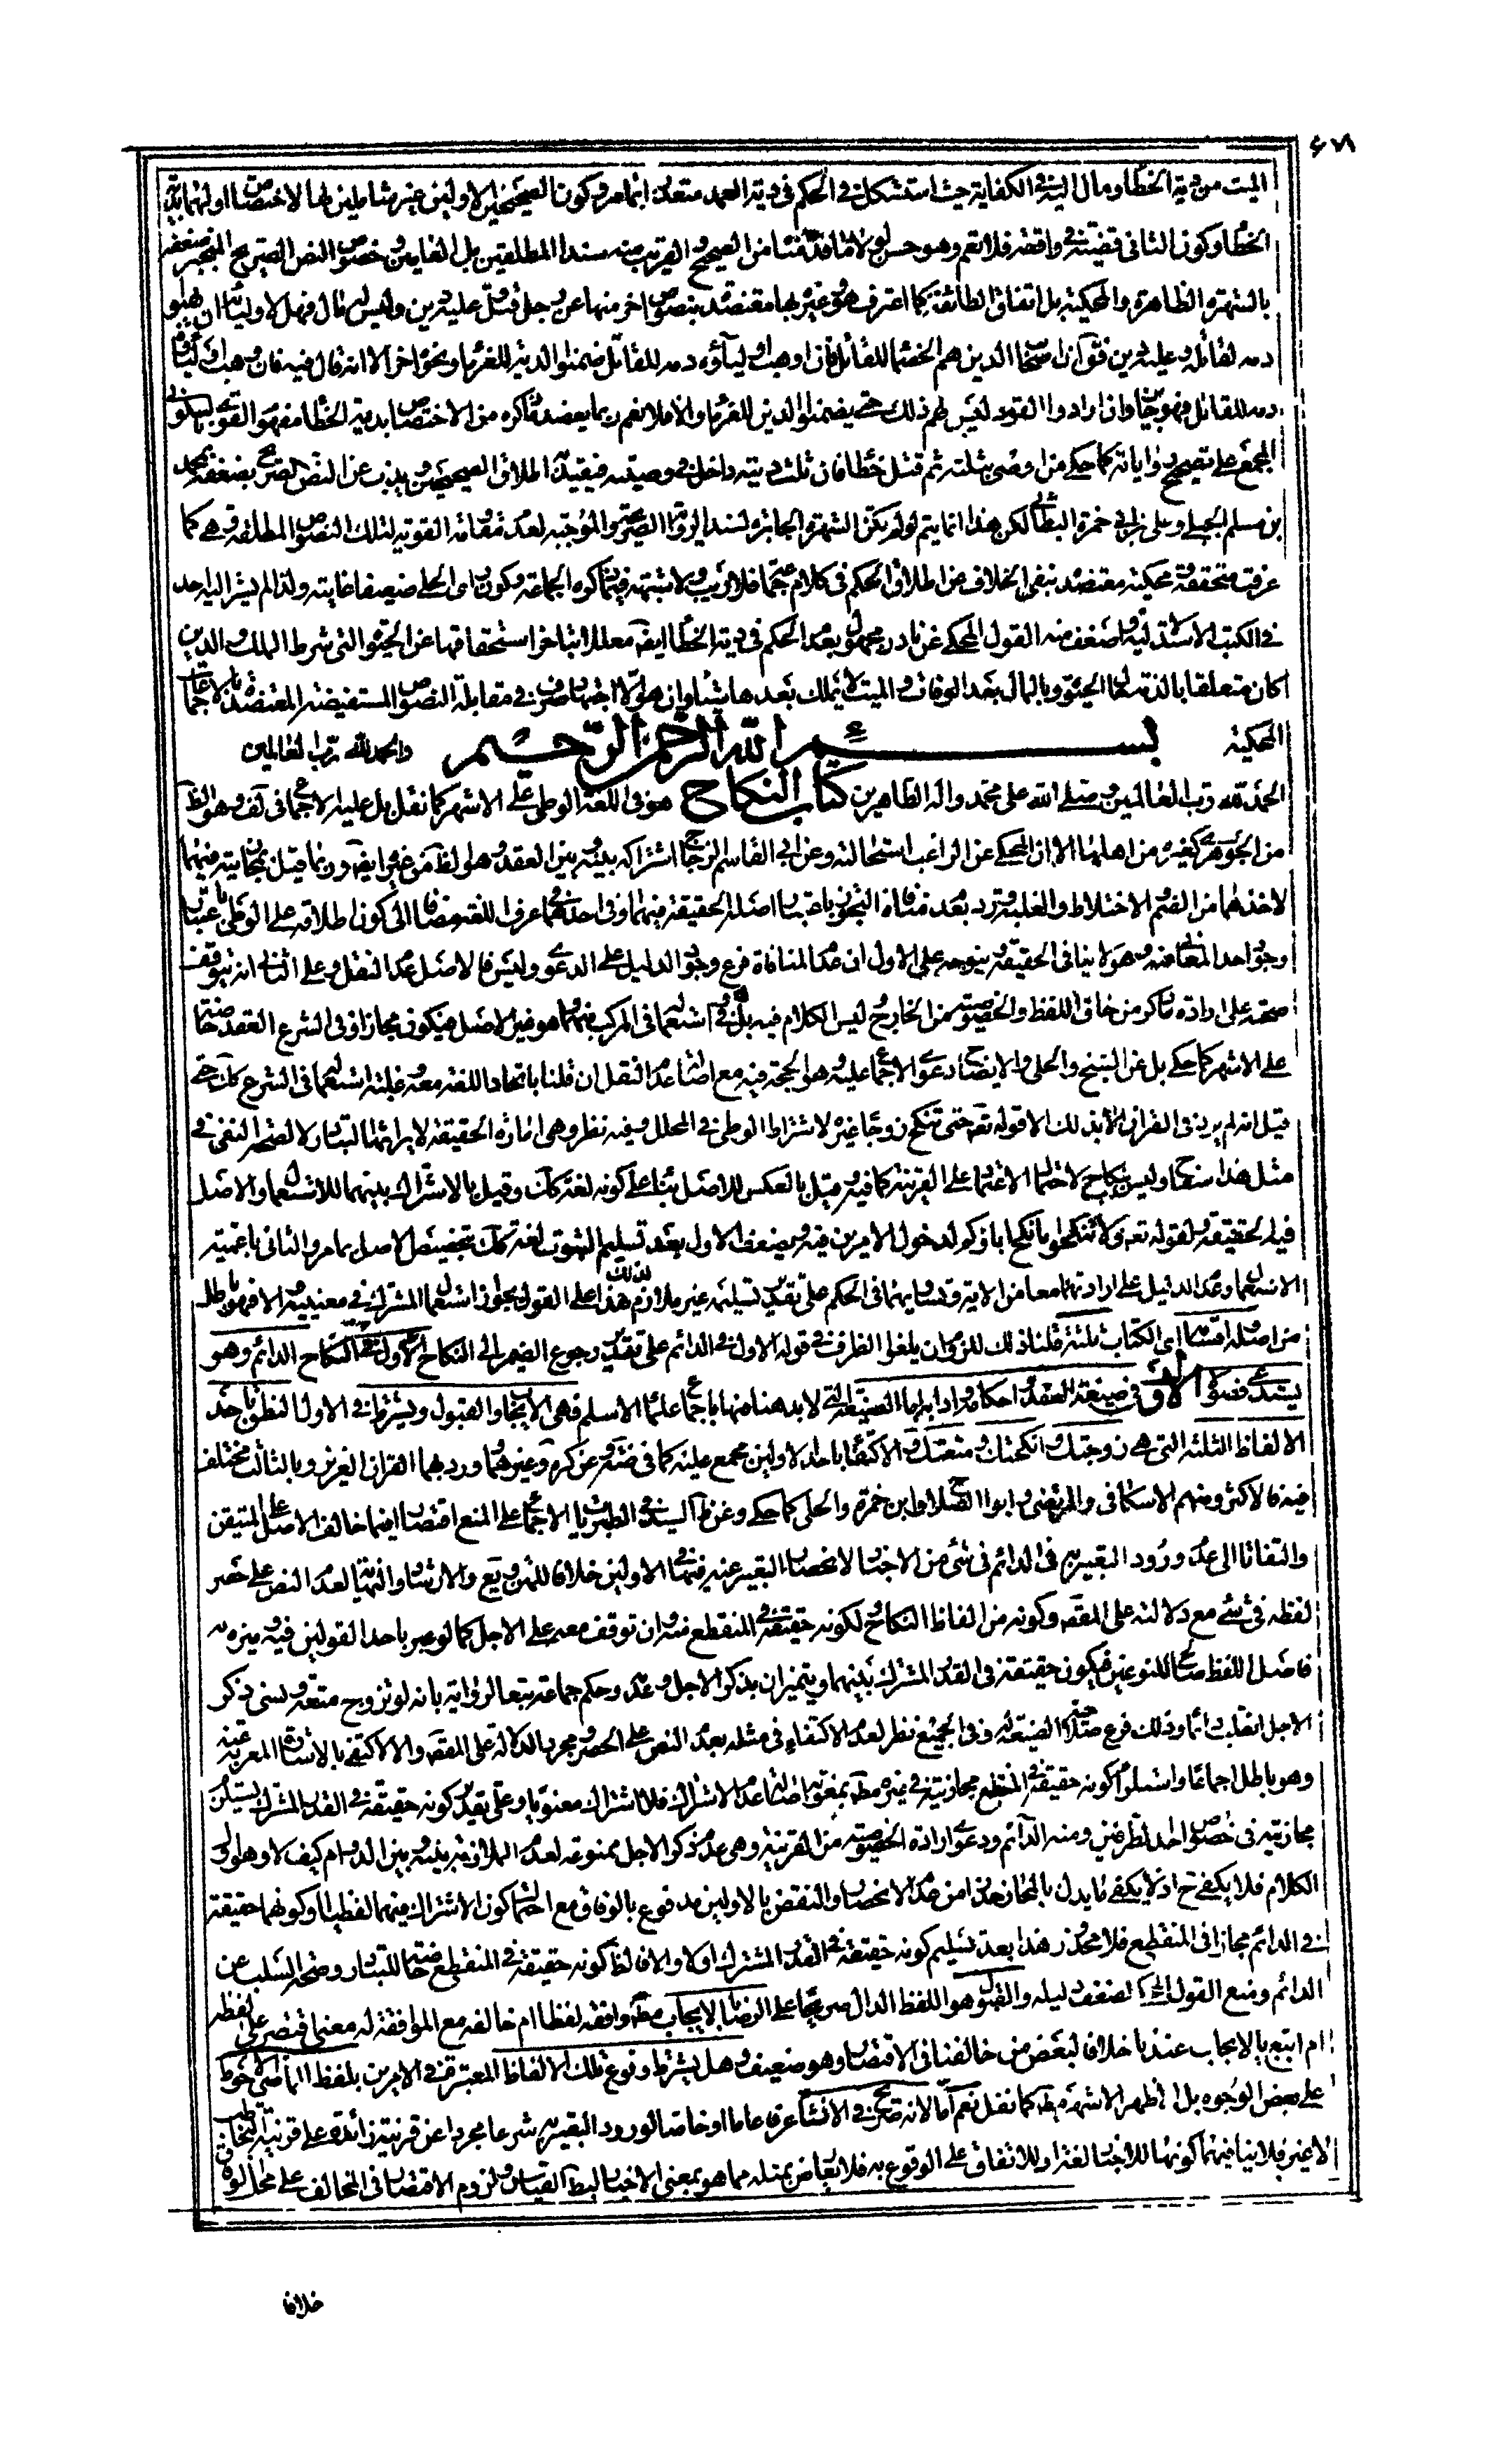 الميت من دية الخطأ ومال اليه في الكفاية حيث استشكل في الحكم في دية العمد متعذرا بما مر وكون الصحيحين الاولين غير شاملين لها لاختصاص اولهما بدية
الخطأ وكون الثاني قضية في واقعة فلا تعم وهو حسن لولا ما قدمنا من الصحيح والقريب منه سندا المطلقين بل العامين وخصوص النص الصريح المنجبر ضعفه
بالشهرة الظاهرة والمحكية بل اتفاق الطائفة كما اعترف هو وغيره بها معتضد بنصوص اخر منها عن رجل قتل وعليه دين وليس له مال فهل لاوليائه ان يهبوا
دمه لقاتله وعليه دين فقال ان اصحاب الدين هم الخصماء للقاتل فان وهب اولياؤه دمه للقاتل ضمنوا الدية للغرماء ونحوه اخر الا انه قال فيه فان وهب اولياؤه
دمه للقاتل فهو جايز وان ارادوا القود ليس لهم ذلك حتى يضمنوا الدين للغرماء والا فلا نعم ربما يعضد ما ذكره من الاختصاص بدية الخطأ مفهوم القوي بالسكوني
المجمع على تصحيح رواياته كما حكي من اوصى بثلثه ثم قتل خطأ فان ثلث ديته داخل في وصيته فيقيد به اطلاق الصحيحين ويذب عن النص الصريح بضعفه بمحمد
بن مسلم الجبلي وعلى بن ابي حمزة البطائني لكن هذا انما يتم لو لم يكن الشهرة الجابرة لسند الرواية الصريحة والموجبة لعدم مقاومة القوية لتلك النصوص المطلقة وهي كما
عرفت متحققة ومحكية معتضد بنفي الخلاف عن اطلاق الحكم في كلام جماعة فلا ريب ولا شبهة فيما ذكره الجماعة وكون ما في الحلي ضعيفا غايته ولذا لم يشر اليه احد
في الكتب الاستدلالية واضعف منه القول المحكي عن نادر مجهول بعدم الحكم في دية الخطأ ايضا معللا بتاخر استحقاقها عن الحيوة التي شرط الملك والدين
كان متعلقا بالذمة حال الحيوة وبالمال بعد الوفاة والميت لا يملك بعدها شيئا وان هو الا اجتهاد صرف في مقابلة النصوص المستفيضة المعتضدة بالاجماعات
المحكية بسم الله الرحمن الرحيم والحمد لله رب العالمين
الحمد لله رب العالمين وصلى الله على محمد واله الطاهرين كتاب النكاح هو في اللغة الوطي على الاشهر كما نقل بل عليه الاجماع في لف وهو الظ
من الجوهري كغيره من اهلها الا ان المحكي عن الراغب استحالته وعن ابي القاسم الزجاج اشتراكه بينه وبين العقد وهو الظ من غيره ايضا وربما قيل بمجازيته فيهما
لاخذهما من الضم الاختلاط والغلبة ورد بعدم منافاة التجوز باعتبار اصله الحقيقة فيهما او في احدهما عرف اللغة مضافا الى كون اطلاقه على الوطي باعتبار
وجود احد المعاني فيه وهو لا ينافي الحقيقة ويتوجه على الاول ان عدم المنافاة فرع وجود الدليل على الدعوى وليس فالاصل عدم النقل وعلى الثاني انه يتوقف
صحته على ارادة ما ذكر من حاق اللفظ والخصوصية من الخارج وليس الكلام فيه بل في استعماله في المركب منهما وهو غير الاصل فيكون مجازا وفي الشرع العقد خاصة
على الاشهر كما حكي بل عن الشيخ والحلي والايضاح دعوى الاجماع عليه وهو الحجة فيه مع اصالة عدم النقل ان قلنا باتحاد اللغة معه وغلبة استعماله في الشرع كك حتى
قيل انه لم يرد في القران الا بذلك الا قوله تعه حتى تنكح زوجا غيره لاشتراط الوطي في المحلل وفيه نظر وهي امارة الحقيقة لايراثها التبادر ولا لصحة النفي في
مثل هذا سفاح وليس بنكاح لاحتمال الاعتماد على القرينة كما فيه وقيل بالعكس للاصل بناء على كونه لغة كك وقيل بالاشتراك بينهما للاستعمال والاصل
فيه الحقيقة ولقوله تعه ولا تنكحوا ما نكح اباؤكم لدخول الامرين فيه ويضعف الاول بعد تسليم الثبوت لغة كك بتخصيص الاصل بما مر والثاني باعمية
الاستعمال وعدم الدليل على ارادتهما معا من الاية وتساويهما في الحكم على تقدير تسليمه غير ملازم لذلك هذا على القول بجواز استعمال المشترك في معنييه والا فهو باطل
من اصله اقسام اي الكتاب ثلثة قلنا ذلك للزوم ان يلغوا الظرف في قوله الاول في الدائم على تقدير رجوع الضمير الى النكاح الاول في النكاح الدائم وهو
يستدعي فصولا الاول في صيغة العقد واحكامه وادابه اما الصيغة التي لابد هنا منها باجماع علماء الاسلام فهي الايجاب والقبول ويشترط في الاول النطق باحد
الالفاظ الثلثة التي هي زوجتك وانكحتك ومتعتك والاكتفاء باحد الاولين مجمع عليه كما في ضة وعن كره وغيرهما وورد بهما القران العزيز وبالثالث مختلف
فيه فالاكثر ومنهم الاسكافي والمرتضى وابو الصلاح وابن حمزة والحلي كما حكي وعن ظ السيد في الطبريات الاجماع على المنع اقتصارا فيما خالف الاصل على المتيقن
والتفاتا الى عدم ورود التعبير به في الدائم في شيء من الاخبار لانحصار التعبير عنه فيها في الاولين خلافا للشرايع والارشاد والنهاية لعدم النص على حصر
لفظه في شيء مع دلالته على المقصود وكونه من الفاظ النكاح لكونه حقيقة في المنقطع منه وان توقف معه على الاجل كما لو عبر باحد القولين فيه وميزه به
فاصل اللفظ صالح للنوعين فيكون حقيقة في القدر المشترك بينهما ويتميزان بذكر الاجل وعدمه وحكم جماعة تبعا لرواية بانه لو تزوج متعة ونسي ذكر
الاجل انقلب دائما وذلك فرع صلاحية الصيغة له وفي الجميع نظر لعدم الاكتفاء في مثله بعدم النص على الحصر ومجرد الدلالة على المقصود والا لاكتفي بالاشارة المعربة عنه
وهو باطل اجماعا واستلزام كونه حقيقة في المنقطع مجازيته في غيره مط بمعونة اصالة عدم الاشتراك فلا اشتراك معنويا وعلى تقدير كونه حقيقة في القدر المشترك يستلزم
مجازيته في خصوص احد الطرفين ومنه الدائم ودعوى ارادة الخصوصية من القرينة وهي عدم ذكر الاجل ممنوعة لعدم الملازمة بينه وبين الدوام كيف لا وهو اول
الكلام فلا يكفي ح اذ لا يكفي ما يدل بالمجاز حذرا من عدم الانحصار والنقض بالاولين مدفوع بالوفاق مع احتمال كون الاشتراك فيهما لفظيا او كونهما حقيقة
في الدائم مجازا في المنقطع فلا محذور هذا بعد تسليم كونه حقيقة في القدر المشترك اولا والا فالظ كونه حقيقة في المنقطع خاصة للتبادر وصحة السلب عن
الدائم ومنع القول لضعف دليله والقبول وهو اللفظ الدال صريحا على الرضا بالايجاب مط وافقه لفظا ام خالفه مع الموافقة له معنى اقتصر على لفظه
ام اتبع بالايجاب عندنا خلافا لبعض من خالفنا في الاقتصار وهو ضعيف وهل يشترط وقوع تلك الالفاظ المعتبرة في الامرين بلفظ الماضي الاحوط
على بعض الوجوه بل الاظهر الاشهر مط كما نقل نعم اما لانه صريح في الانشاء عرفا عاما او خاصا لورود التعبير به شرعا مجردا عن قرينة زائدة على قرينة التخاطب
لا غير فلا ينافيهما كونها للاخبار لغة او للاتفاق على الوقوع به فلا يعارض بمثله مما هو بمعنى الاخبار لبطلان القياس ولزوم الاقتصار في المخالف على محل الوفاق
خلافا